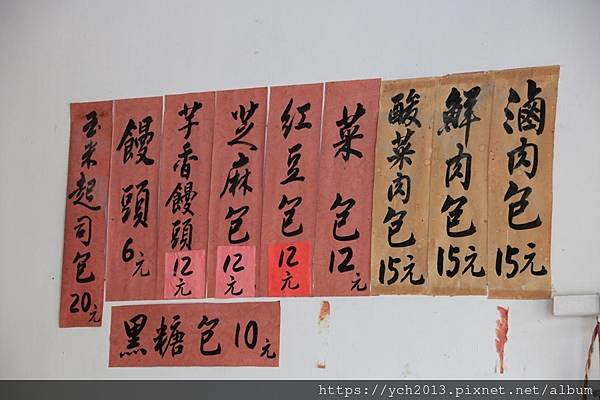 滷肉包15元
鮮肉包15元
酸菜肉包15元
菜包12元
紅豆包12元
芝麻包12元
芋香饅頭12元
饅頭6元
玉米起司包20元
黑糖包10元
https://ych2013.pixnet.net/album